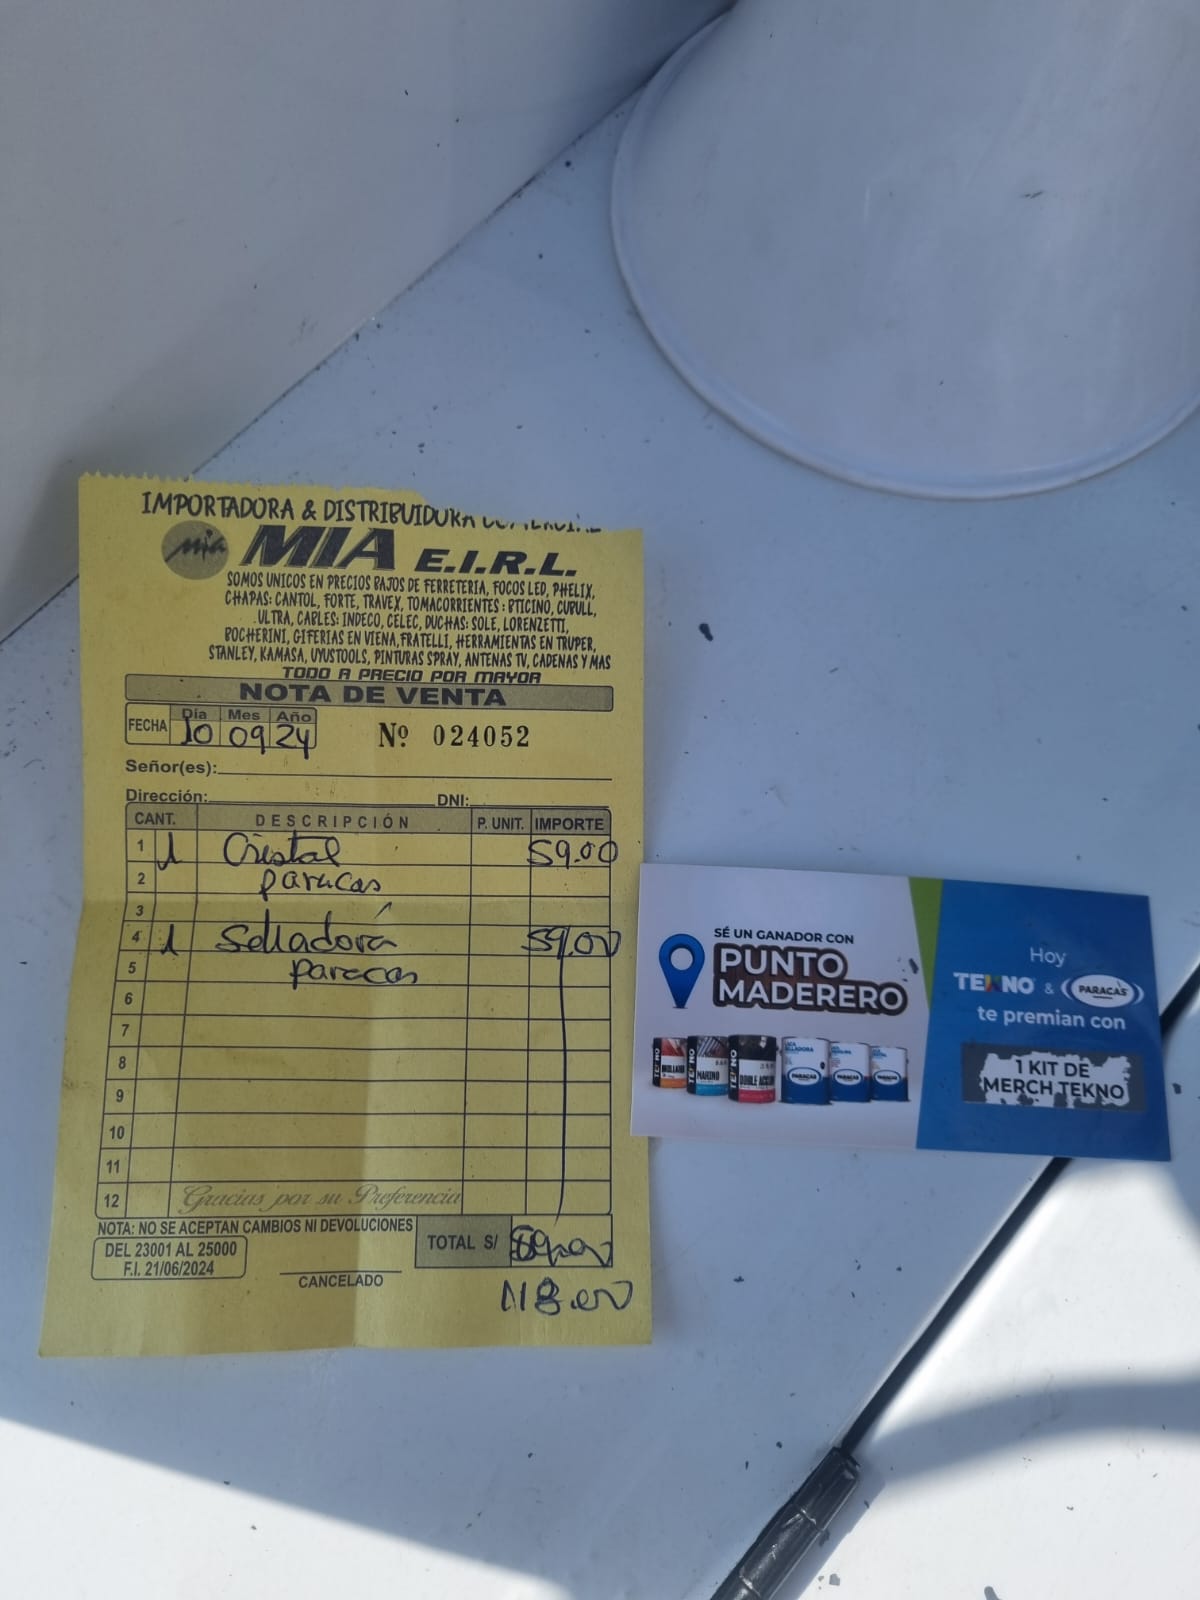 IMPORTADORA & DISTRIBUIDORA COMERCIAL
mia MIA E.I.R.L.
SOMOS UNICOS EN PRECIOS BAJOS DE FERRETERIA, FOCOS LED, PHELIX,
CHAPAS: CANTOL, FORTE, TRAVEX, TOMACORRIENTES : BTICINO, CUBULL,
ULTRA, CABLES: INDECO, CELEC, DUCHAS: SOLE, LORENZETTI,
BOCHERINI, GIFERIAS EN VIENA, FRATELLI, HERRAMIENTAS EN TRUPER,
STANLEY, KAMASA, UYUSTOOLS, PINTURAS SPRAY, ANTENAS TV, CADENAS Y MAS
TODO A PRECIO POR MAYOR
NOTA DE VENTA
FECHA Día Mes Año
10 09 24 Nº 024052
Señor(es):
Dirección: DNI:
CANT. DESCRIPCIÓN P. UNIT. IMPORTE
1 1 Cristal 59.00
2 paracas
3
4 1 Selladora 59.00
5 paracas
6
7
8
9
10
11
12 Gracias por su Preferencia
NOTA: NO SE ACEPTAN CAMBIOS NI DEVOLUCIONES
DEL 23001 AL 25000
F.I. 21/06/2024
CANCELADO
TOTAL S/
118.00
SÉ UN GANADOR CON
PUNTO
MADERERO
Hoy
TEKNO & PARACAS
te premian con
1 KIT DE
MERCH TEKNO
TEKNO
TEKNO MARINO
TEKNO DOBLE ACCIÓN
SELLADORA PARACAS
PARACAS
PARACAS